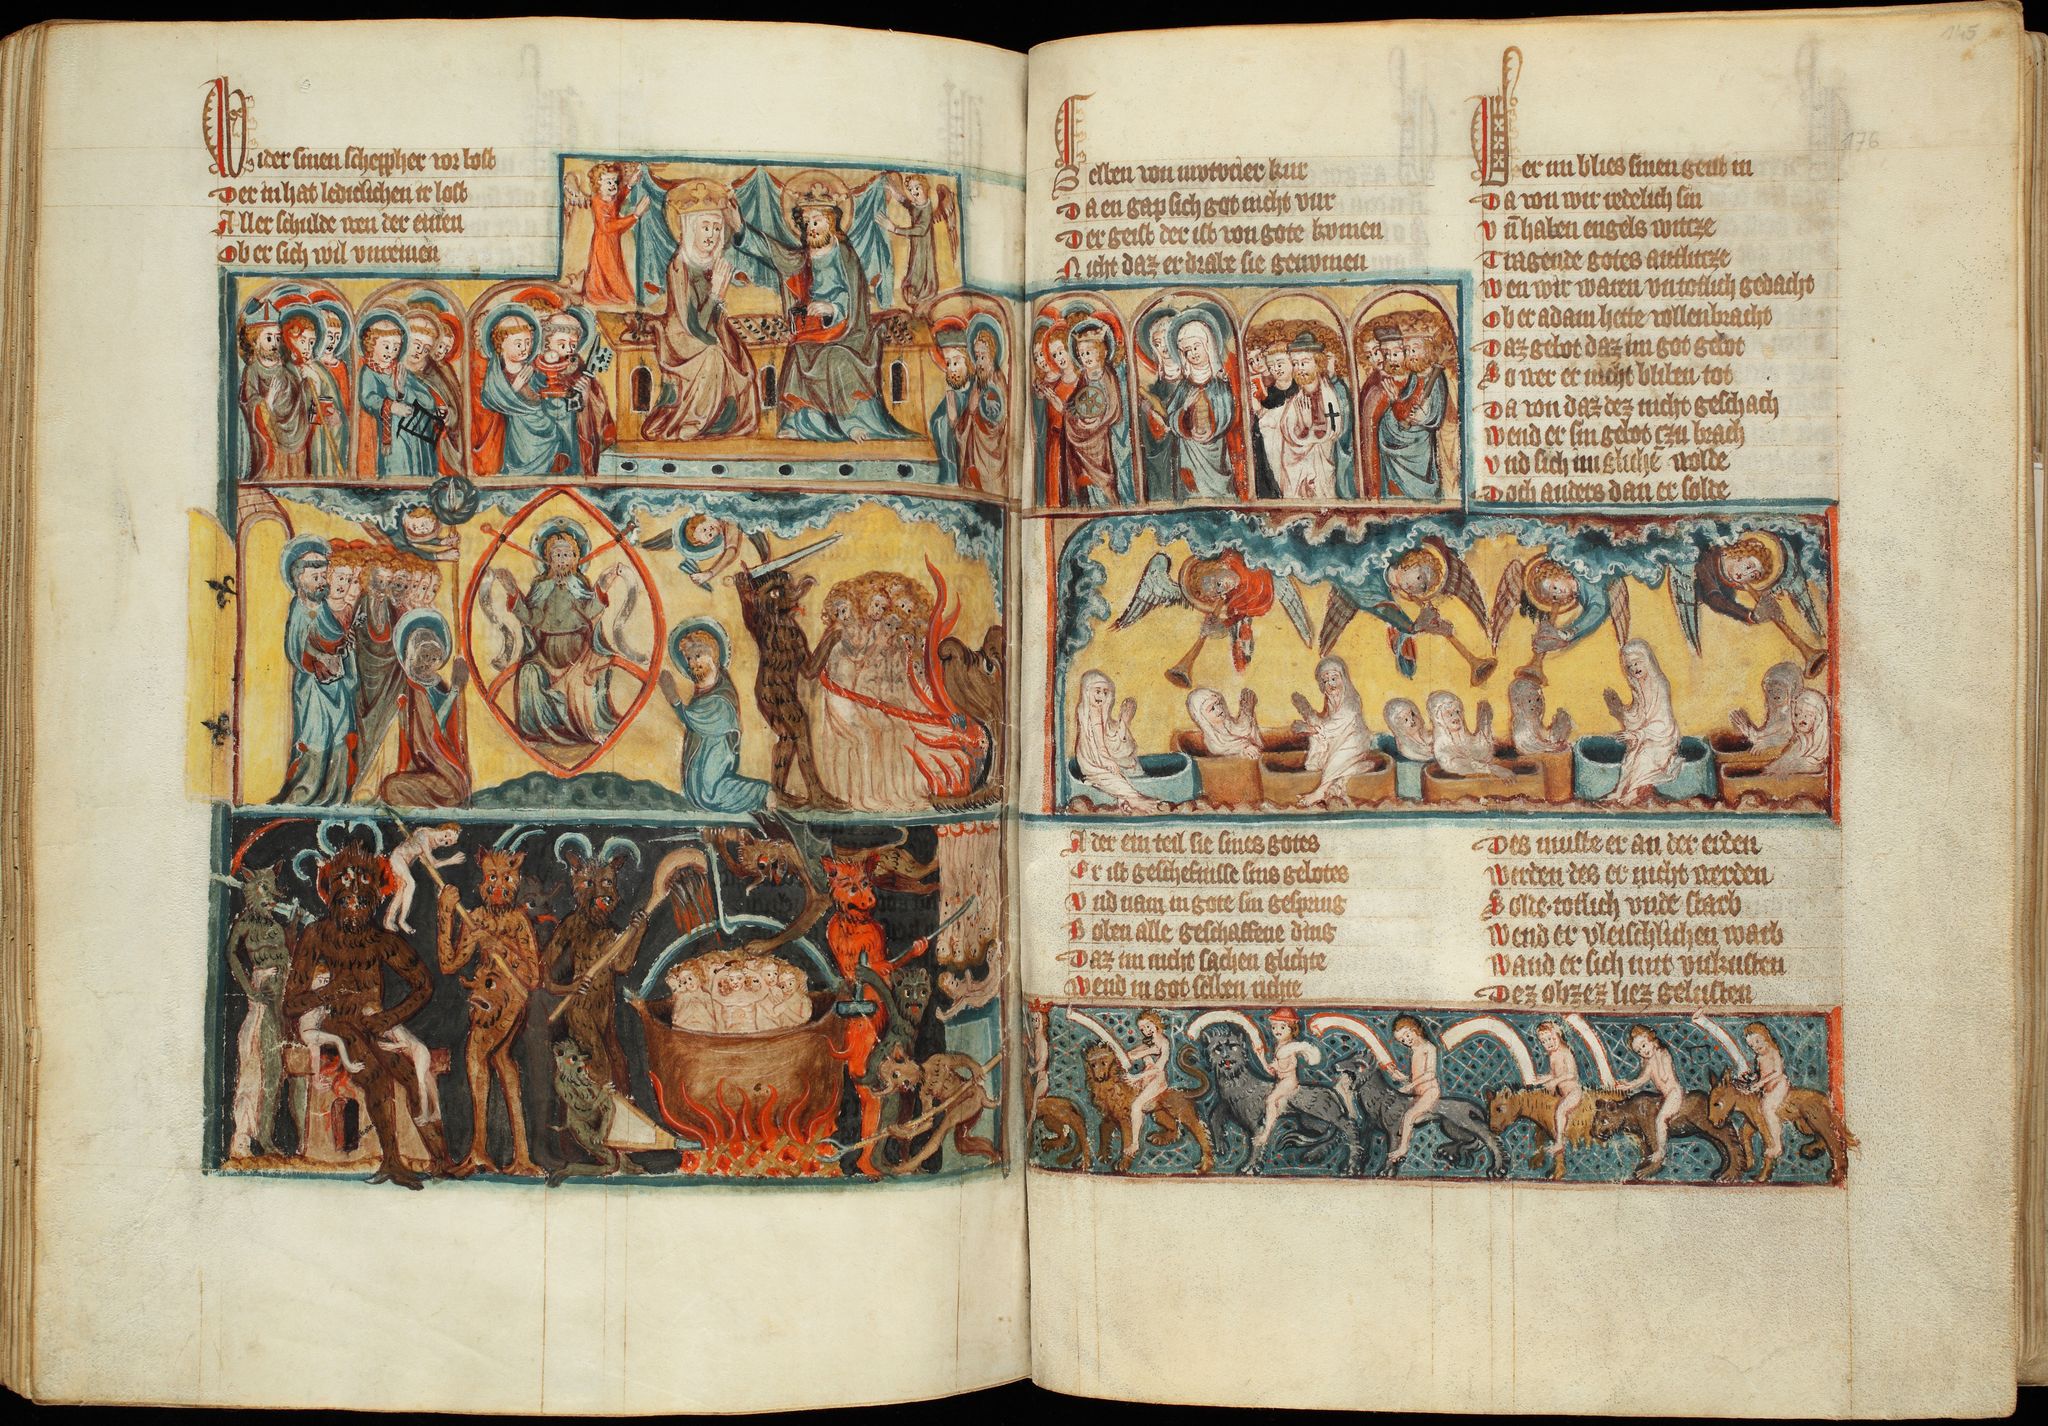 Wider sinen scheppher vor lost
Der in hat lediclichen ir lost
Aller schulde wen der einen
Ob er sich wil vnreinen
Sellen von muter kur
Da en gap sich got nicht vur
Der geist der ist von gote kvmen
Nicht daz er drabe sie genvmen
Ader ein teil sie sines gotes
Er ist geschefnisse sins gebotes
Vnd nam in gote sin gesprung
Boben alle geschaffene ding
Daz im nicht sachen glichte
Wend in got selben richte
Der nu blies sinen geist in
Da von wir redelich sin
Vn haben engels witze
Tragende gotes antlitze
Wen wir waren vntotlich gedacht
Ob er adam hette vollenbracht
Daz gebot daz im got gebot
So wer er nicht bliben tot
Da von daz dez nicht geschach
Wend er sin gebot czu brach
Vnd sich im gliche wolde
Doch anders dan er solde
Des muste er an der erden
Werden des er nicht werden
Solde totlich vnde starb
Wend er vleischlichen warb
Wand er sich mit vnkusten
Dez obzez liez gelusten
145
176